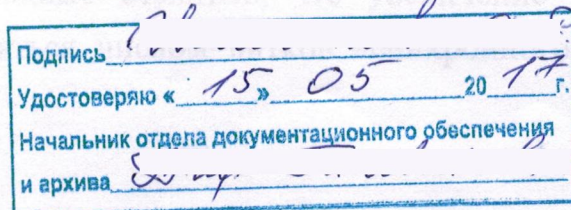 Подпись
Удостоверяю « 15 » 05 20 17 г.
Начальник отдела документационного обеспечения
и архива